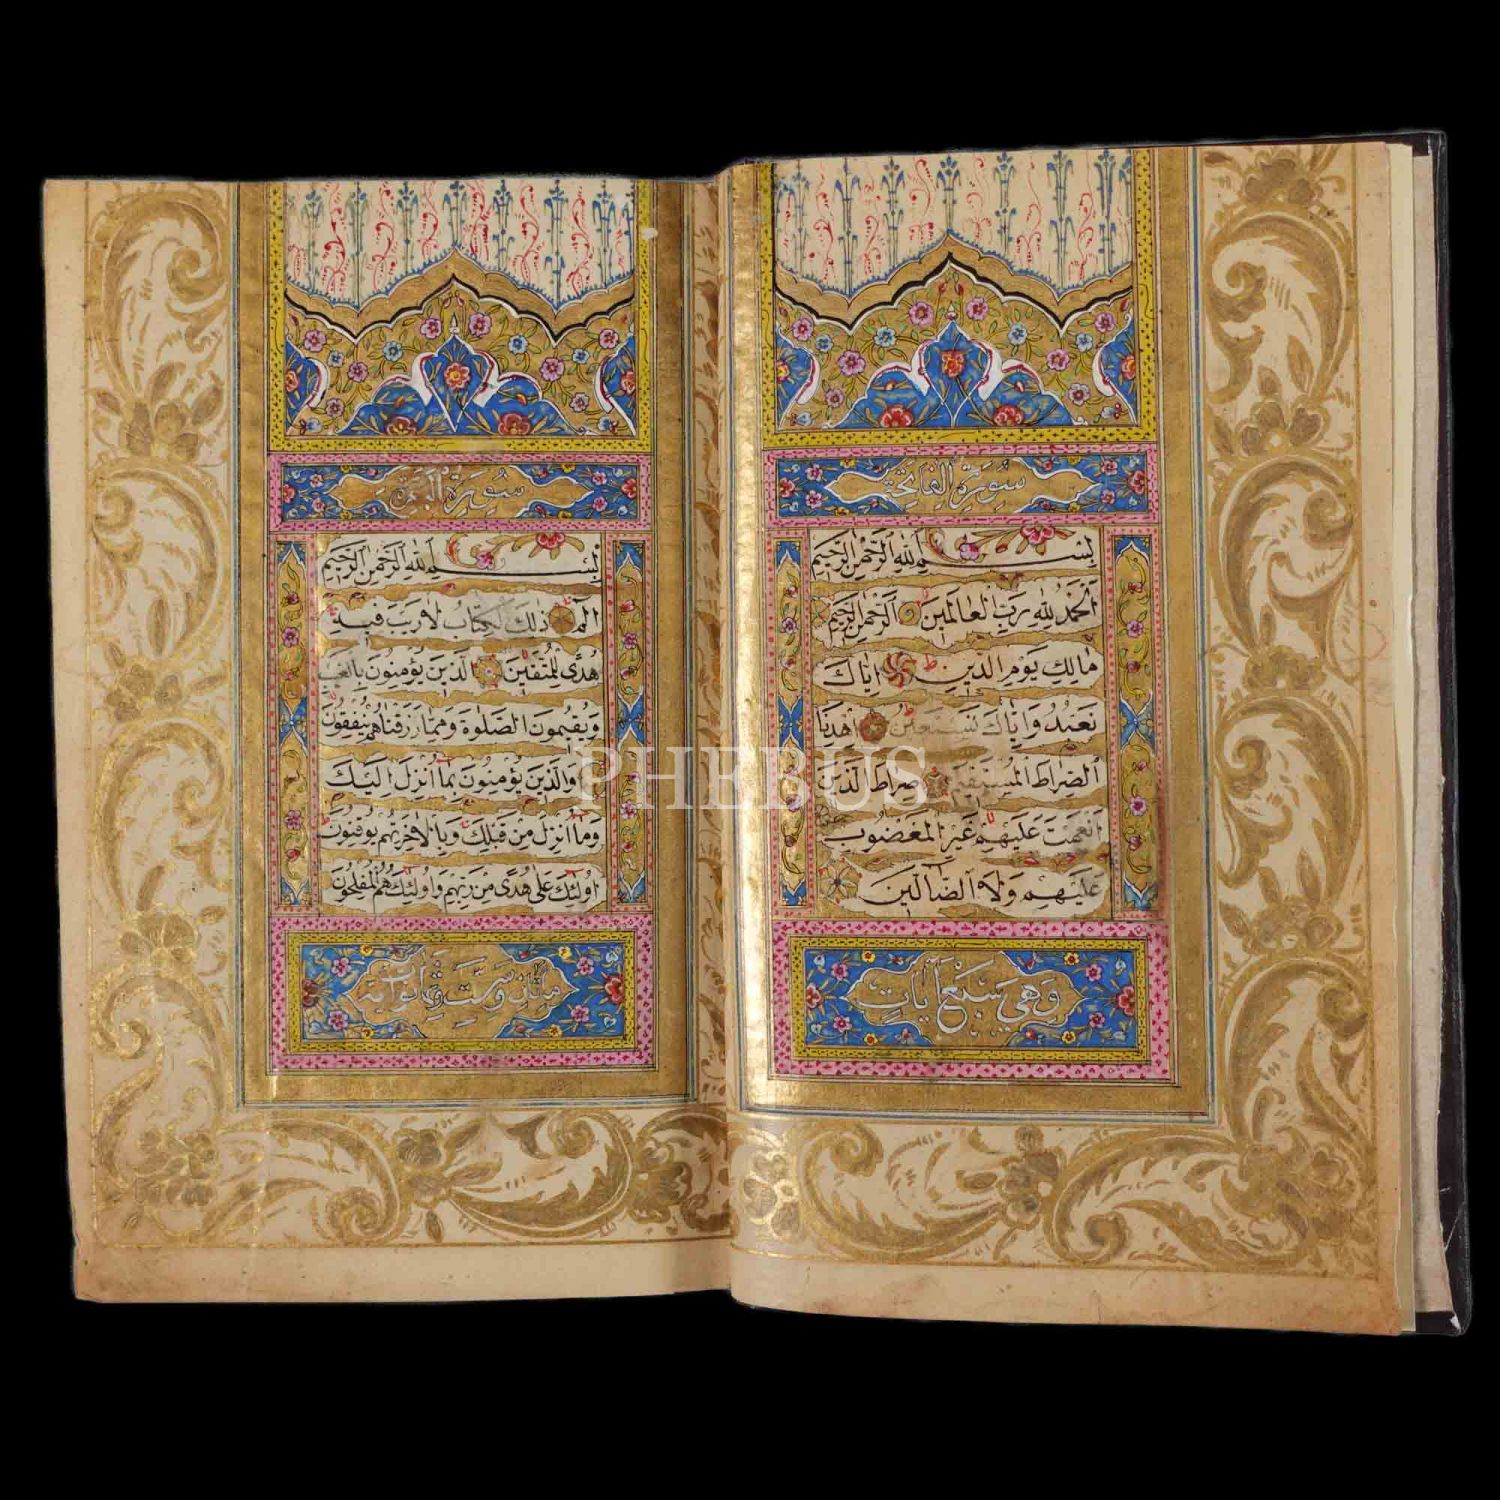 سورة الفاتحة
بسم الله الرحمن الرحيم
الحمد لله رب العالمين الرحمن الرحيم
مالك يوم الدين اياك
نعبد واياك نستعين اهدنا
الصراط المستقيم صراط الذين
انعمت عليهم غير المغضوب
عليهم ولا الضالين
وهي سبع آيات
سورة البقرة
بسم الله الرحمن الرحيم
الم ذلك الكتاب لا ريب فيه
هدى للمتقين الذين يؤمنون بالغيب
ويقيمون الصلوة ومما رزقناهم ينفقون
والذين يؤمنون بما انزل اليك
وما انزل من قبلك وبالاخرة هم يوقنون
اولئك على هدى من ربهم واولئك هم المفلحون
مائتان وست آية
PHEBUS